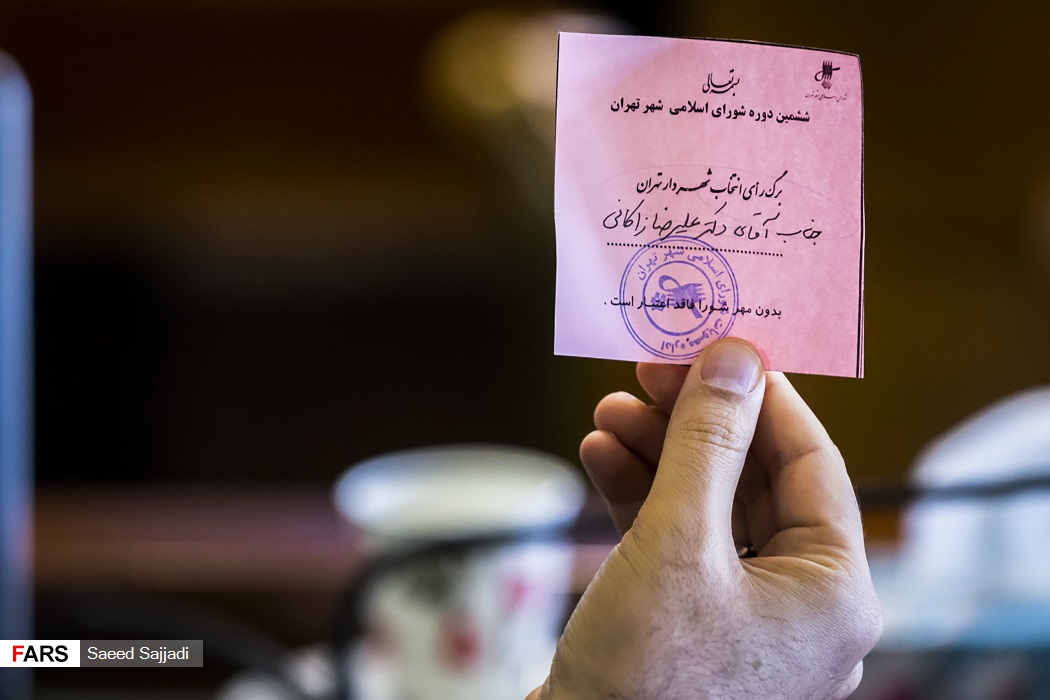 بسمه تعالی
شورای اسلامی شهر تهران
ششمین دوره شورای اسلامی شهر تهران
برگ رأی انتخاب شهردار تهران
جناب آقای دکتر علیرضا زاکانی
شورای اسلامی شهر تهران
بدون مهر شورا فاقد اعتبار است .
اداره مصوبات
FARS Saeed Sajjadi